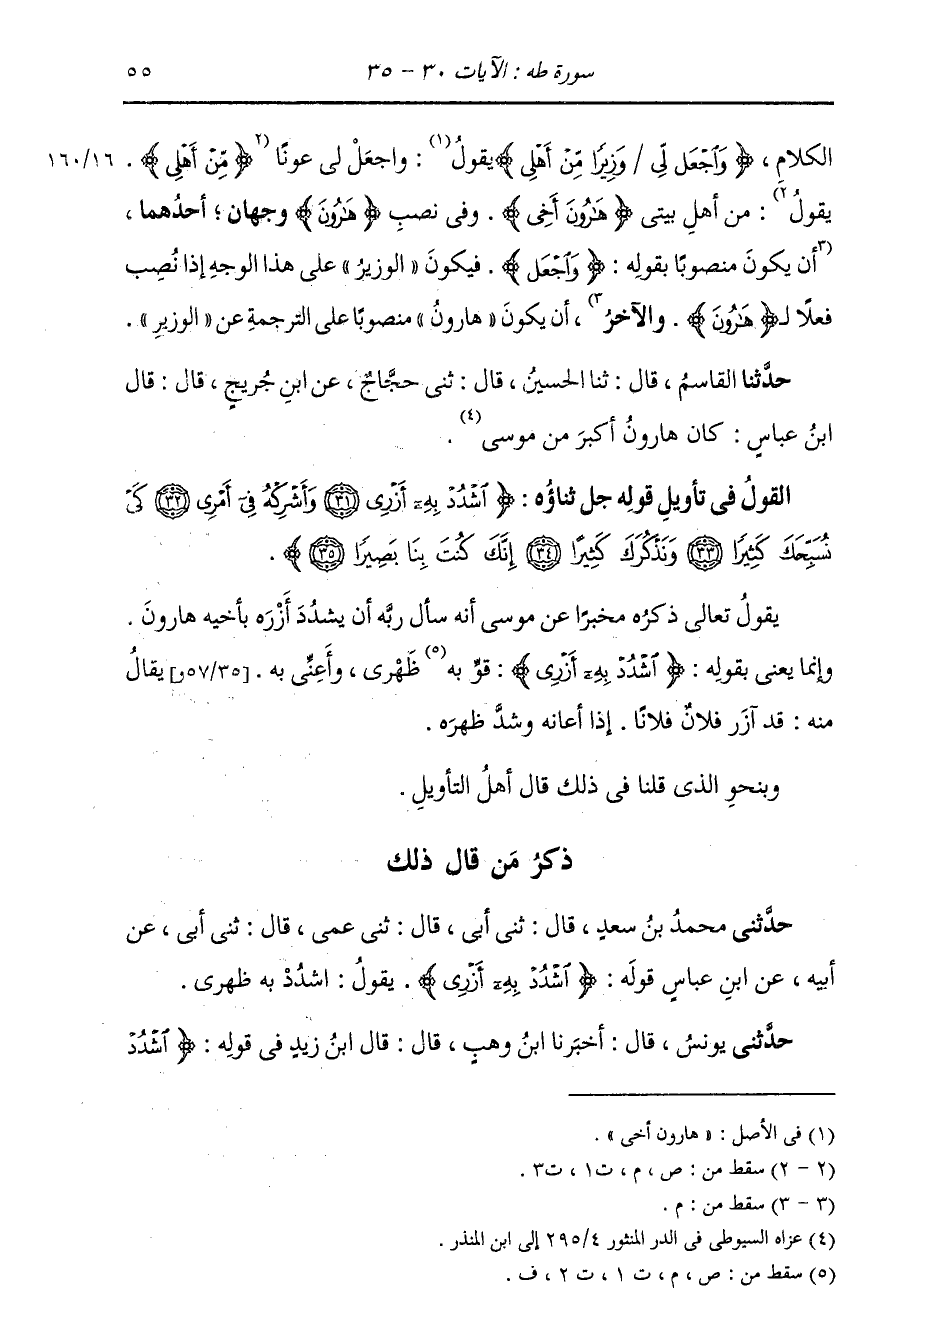 سورة طه : الآيات ٣٠ - ٣٥
٥٥
الكلامِ ، ﴿ وَٱجْعَل لِّي / وَزِيرًا مِّنْ أَهْلِي ﴾ يقولُ(١) : واجعَلْ لى عونًا (٢﴿ مِّنْ أَهْلِي ﴾ . ١٦٠/١٦
يقولُ٢) : من أهلِ بيتى ﴿ هَٰرُونَ أَخِي ﴾ . وفى نصبِ ﴿ هَٰرُونَ ﴾ وجهان ؛ أحدُهما ،
(٣أن يكونَ منصوبًا بقولِه : ﴿ وَٱجْعَل ﴾ . فيكونَ « الوزيرُ » على هذا الوجهِ إذا نُصِب
فعلًا لـ﴿ هَٰرُونَ ﴾ . والآخرُ٣) ، أن يكونَ « هارونُ » منصوبًا على الترجمةِ عن « الوزيرِ » .
حدَّثنا القاسمُ ، قال : ثنا الحسينُ ، قال : ثنى حجَّاجٌ ، عن ابنِ جُريجٍ ، قال : قال
ابنُ عباسٍ : كان هارونُ أكبرَ من موسى(٤) .
القولُ فى تأويلِ قولِه جل ثناؤُه : ﴿ ٱشْدُدْ بِهِۦٓ أَزْرِى ٣١ وَأَشْرِكْهُ فِىٓ أَمْرِى ٣٢ كَىْ
نُسَبِّحَكَ كَثِيرًا ٣٣ وَنَذْكُرَكَ كَثِيرًا ٣٤ إِنَّكَ كُنتَ بِنَا بَصِيرًا ٣٥ ﴾ .
يقولُ تعالى ذكرُه مخبرًا عن موسى أنه سأل ربَّه أن يشدُدَ أَزْرَه بأخيه هارونَ .
وإنما يعنى بقولِه : ﴿ ٱشْدُدْ بِهِۦٓ أَزْرِى ﴾ : قوِّ به(٥) ظَهْرى ، وأَعِنِّى به . [٥٧/٣٥و] يقالُ
منه : قد آزَر فلانٌ فلانًا . إذا أعانه وشدَّ ظهرَه .
وبنحوِ الذى قلنا فى ذلك قال أهلُ التأويلِ .
ذكرُ مَن قال ذلك
حدَّثنى محمدُ بنُ سعدٍ ، قال : ثنى أبى ، قال : ثنى عمى ، قال : ثنى أبى ، عن
أبيه ، عن ابنِ عباسٍ قولَه : ﴿ ٱشْدُدْ بِهِۦٓ أَزْرِى ﴾ . يقولُ : اشدُدْ به ظهرى .
حدَّثنى يونسُ ، قال : أخبَرنا ابنُ وهبٍ ، قال : قال ابنُ زيدٍ فى قولِه : ﴿ ٱشْدُدْ
(١) فى الأصل : « هارون أخى » .
(٢ - ٢) سقط من : ص ، م ، ت١ ، ت٣ .
(٣ - ٣) سقط من : م .
(٤) عزاه السيوطى فى الدر المنثور ٢٩٥/٤ إلى ابن المنذر .
(٥) سقط من : ص ، م ، ت ١ ، ت ٢ ، ف .